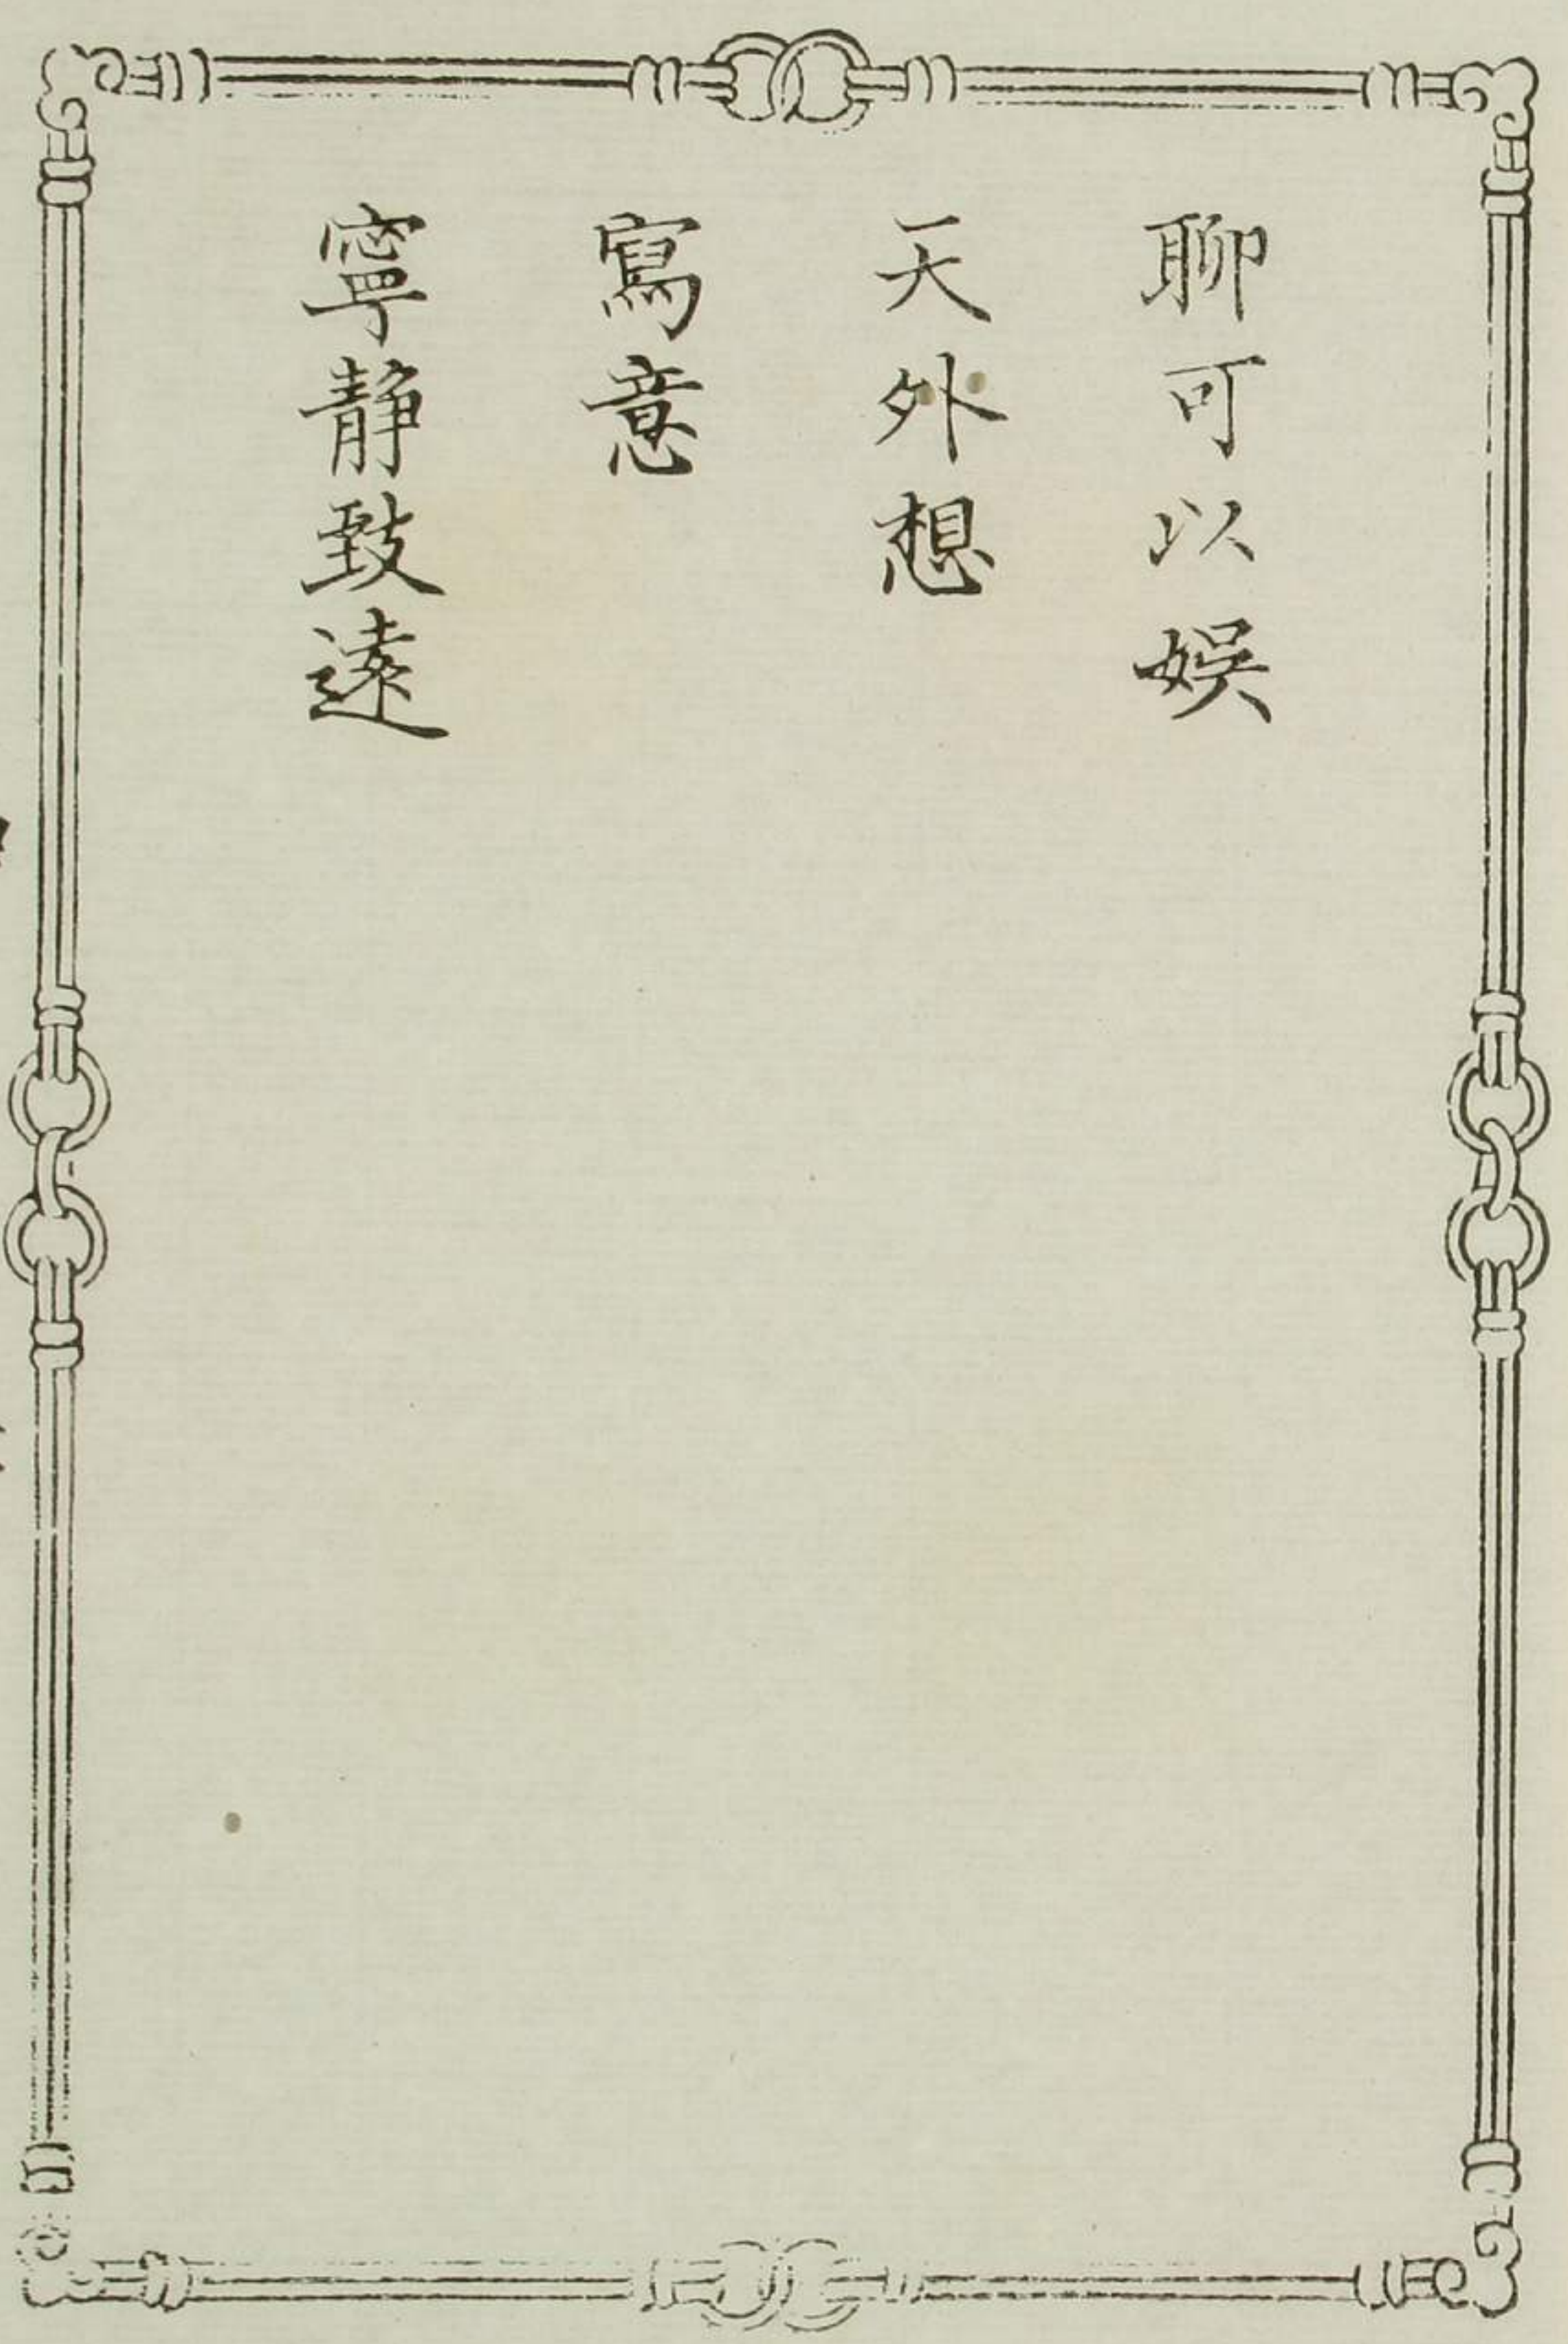 聊可以娱
天外想
寫意
寧靜致遠